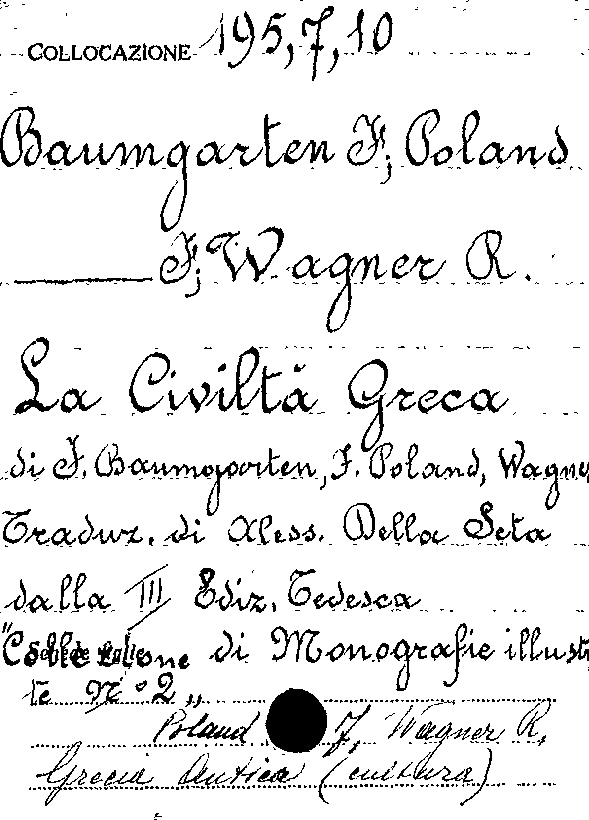 COLLOCAZIONE 195,7,10
Baumgarten F; Poland
F; Wagner R.
La Civiltà Greca
di F. Baumgarten, F. Poland, Wagne
Traduz. di Aless. Della Seta
dalla III Ediz. Tedesca
"Collezione di Monografie illust
te N° 2"
Poland F, Wagner R.
Grecia Antica (cultura)